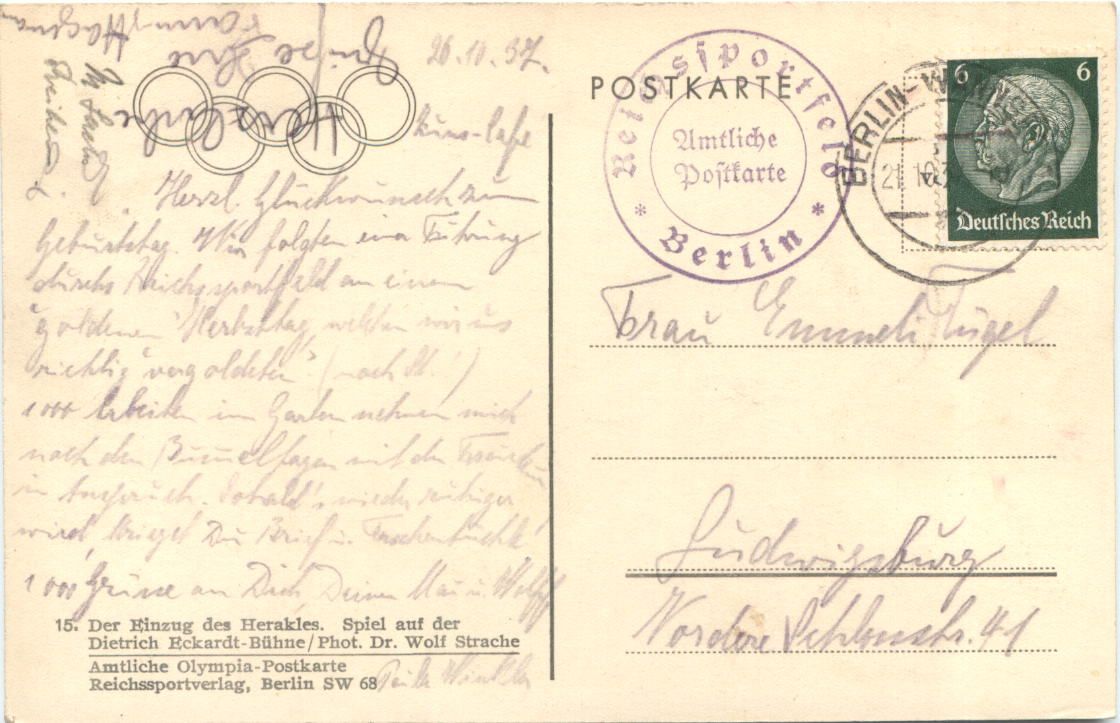 26.10.37.
Herzl. Glückwunsch zum
Geburtstag. Wir folgten einer Führung
durchs Reichssportfeld an einem
"goldenen" Herbsttag, welchen wir uns
richtig "vergoldeten". (nach
1000 Arbeiten im Garten nehmen mich
nach den Bummeltagen mit den
in Anspruch. Sobald's wieder ruhiger
wird, kriegst Du Brief u. Taschentüchle!
1000 Grüsse an Dich, Deinen Mann u.
Grüsse Ihre
15. Der Einzug des Herakles. Spiel auf der
Dietrich Eckardt-Bühne/Phot. Dr. Wolf Strache
Amtliche Olympia-Postkarte
Reichssportverlag, Berlin SW 68
POSTKARTE
Reichssportfeld
Amtliche
Postkarte
* Berlin *
BERLIN-
21.10.
6 6
Deutsches Reich
Frau Emmeli Tügel
Ludwigsburg
Vordere Schlossstr. 41